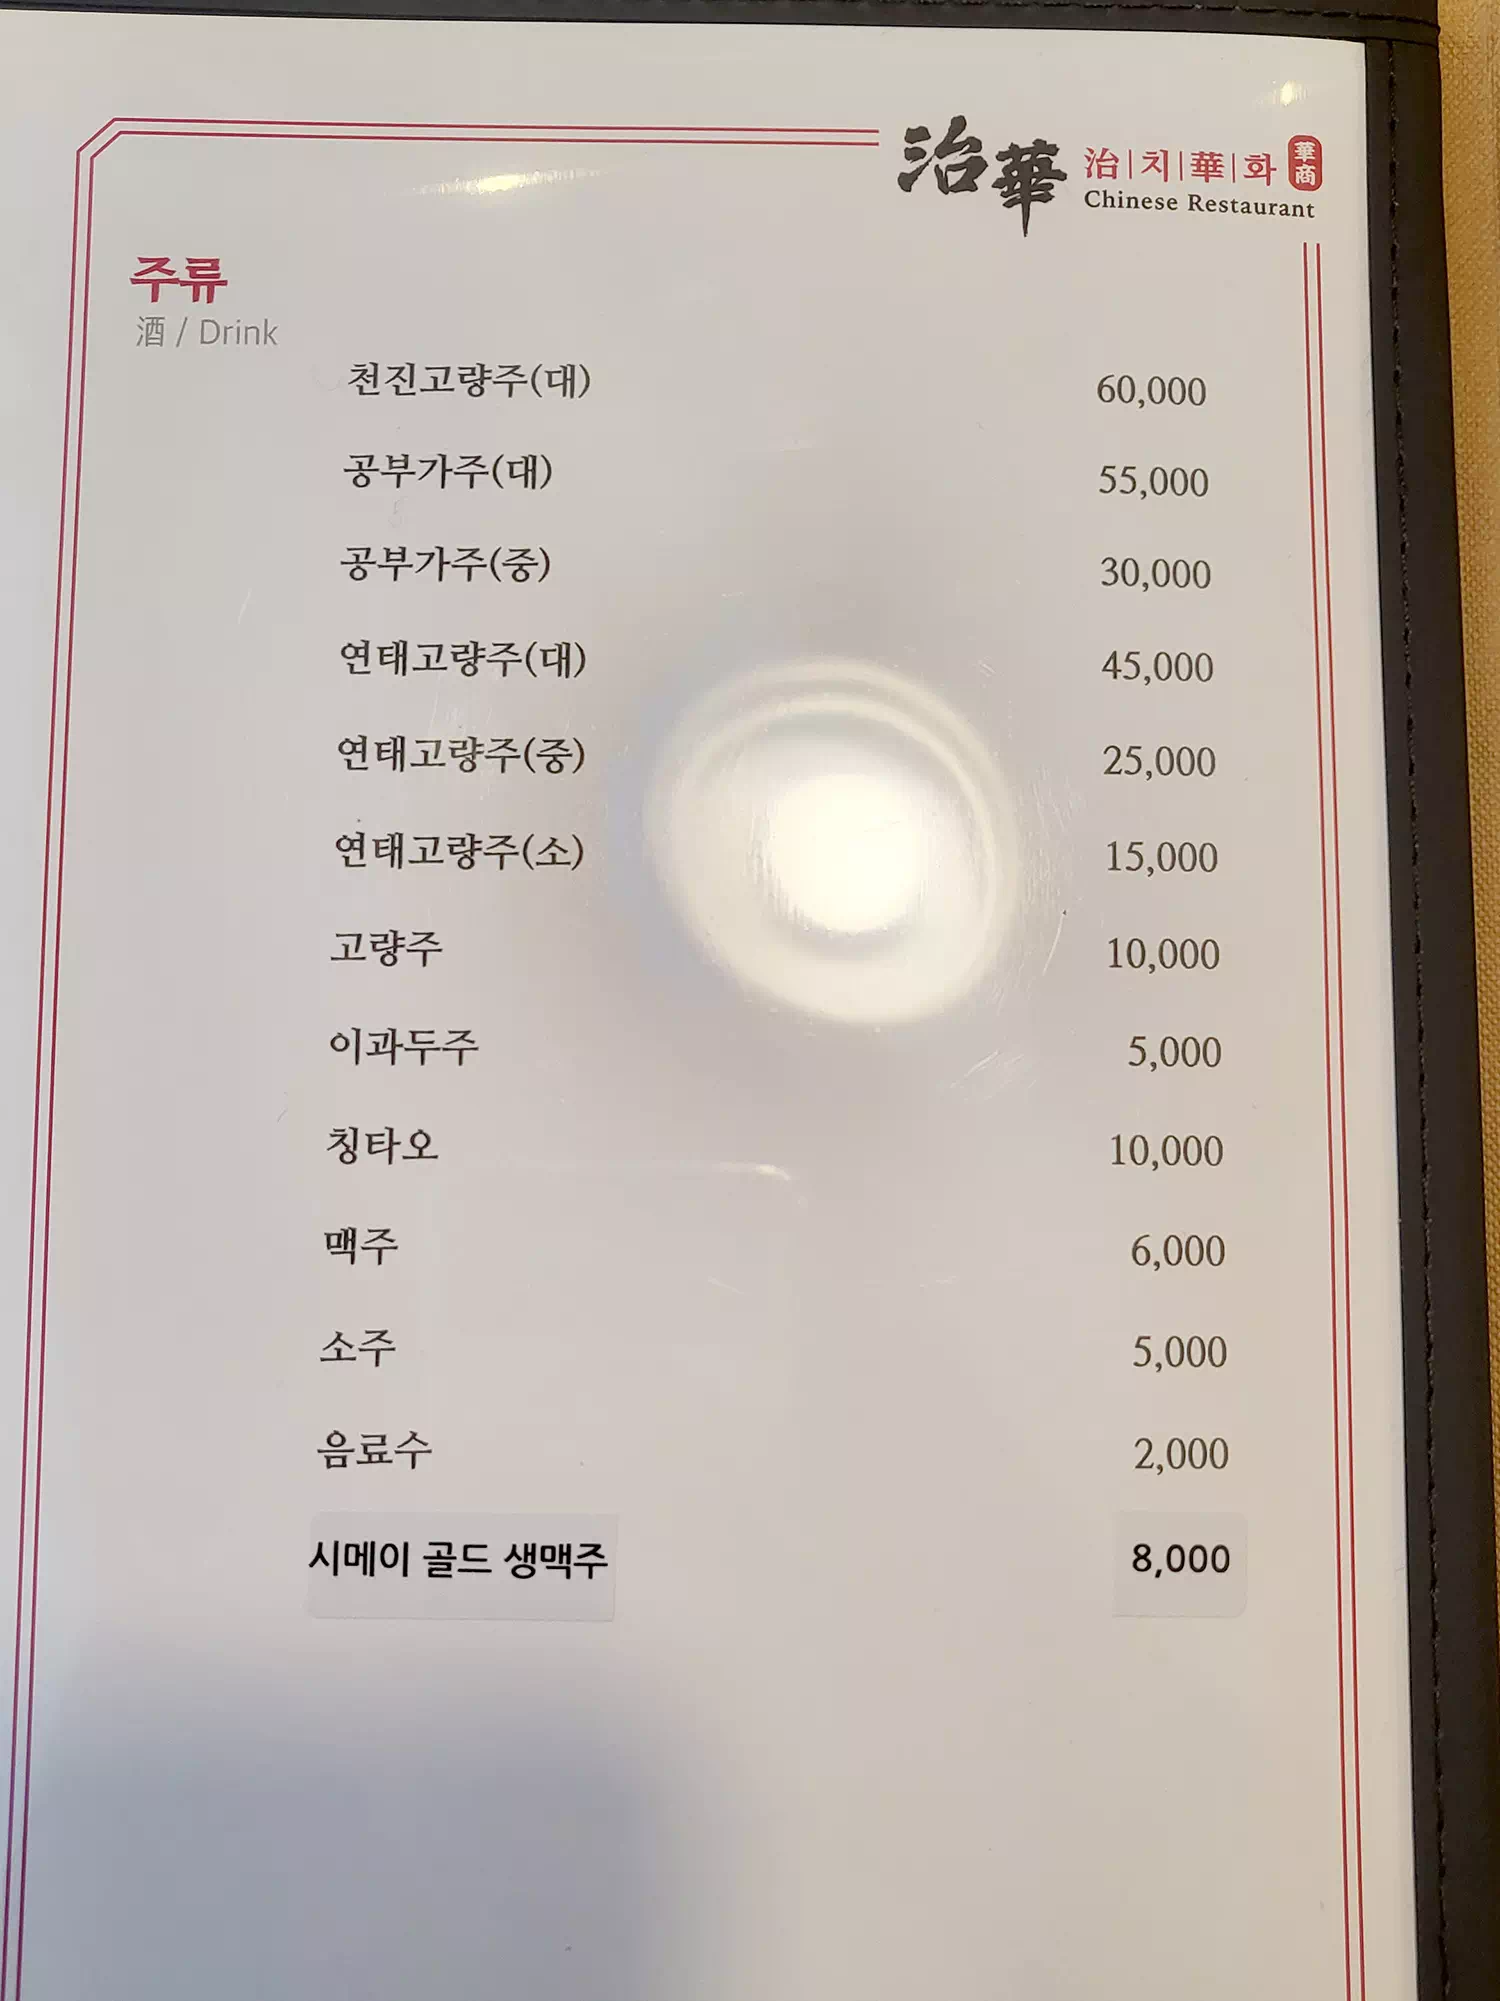 治華 治|치|華|화 華商
Chinese Restaurant
주류
酒 / Drink
천진고량주(대) 60,000
공부가주(대) 55,000
공부가주(중) 30,000
연태고량주(대) 45,000
연태고량주(중) 25,000
연태고량주(소) 15,000
고량주 10,000
이과두주 5,000
칭타오 10,000
맥주 6,000
소주 5,000
음료수 2,000
시메이 골드 생맥주 8,000